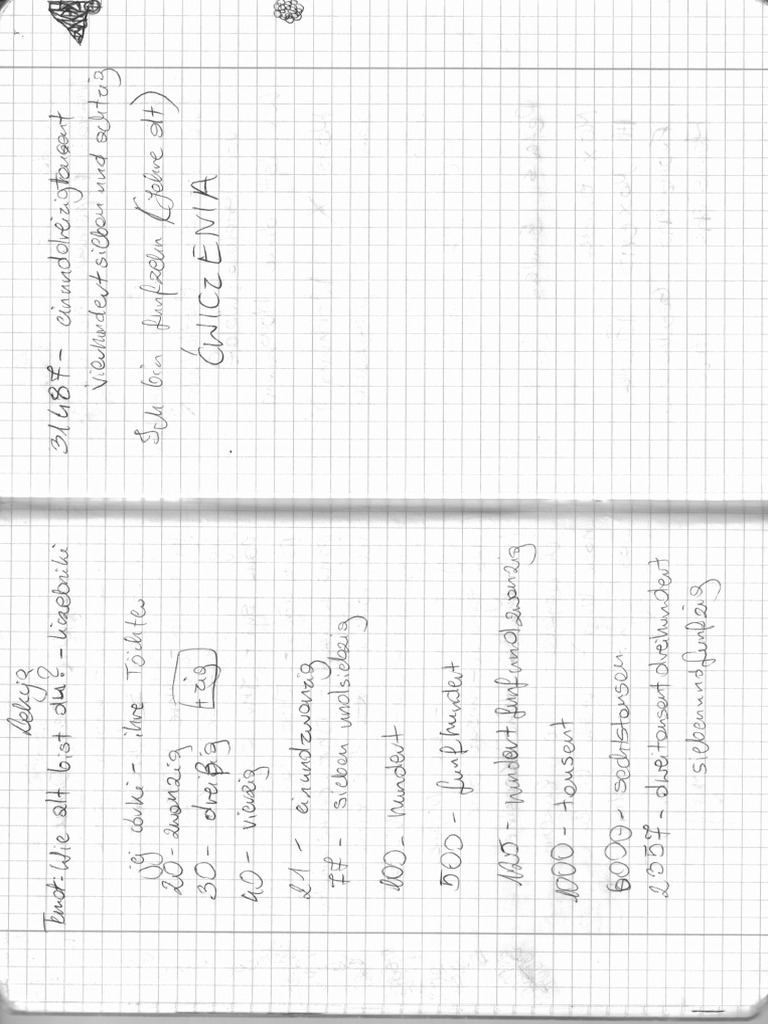 Lekcja
Temat: Wie alt bist du? - liczebniki
jej córki - ihre Töchter
20 - zwanzig
30 - dreißig +zig
40 - vierzig
21 - einundzwanzig
77 - sieben undsiebzig
100 - hundert
500 - funfhundert
125 - hundert funfundzwanzig
1000 - tausent
6000 - sechstausen
2357 - zweitausent dreihundert
siebenundfunfzig
31487 - einunddreizigtausent
vierhundertsieben und achtzig
Ich bin funfzehn (Jahre alt)
ĆWICZENIA